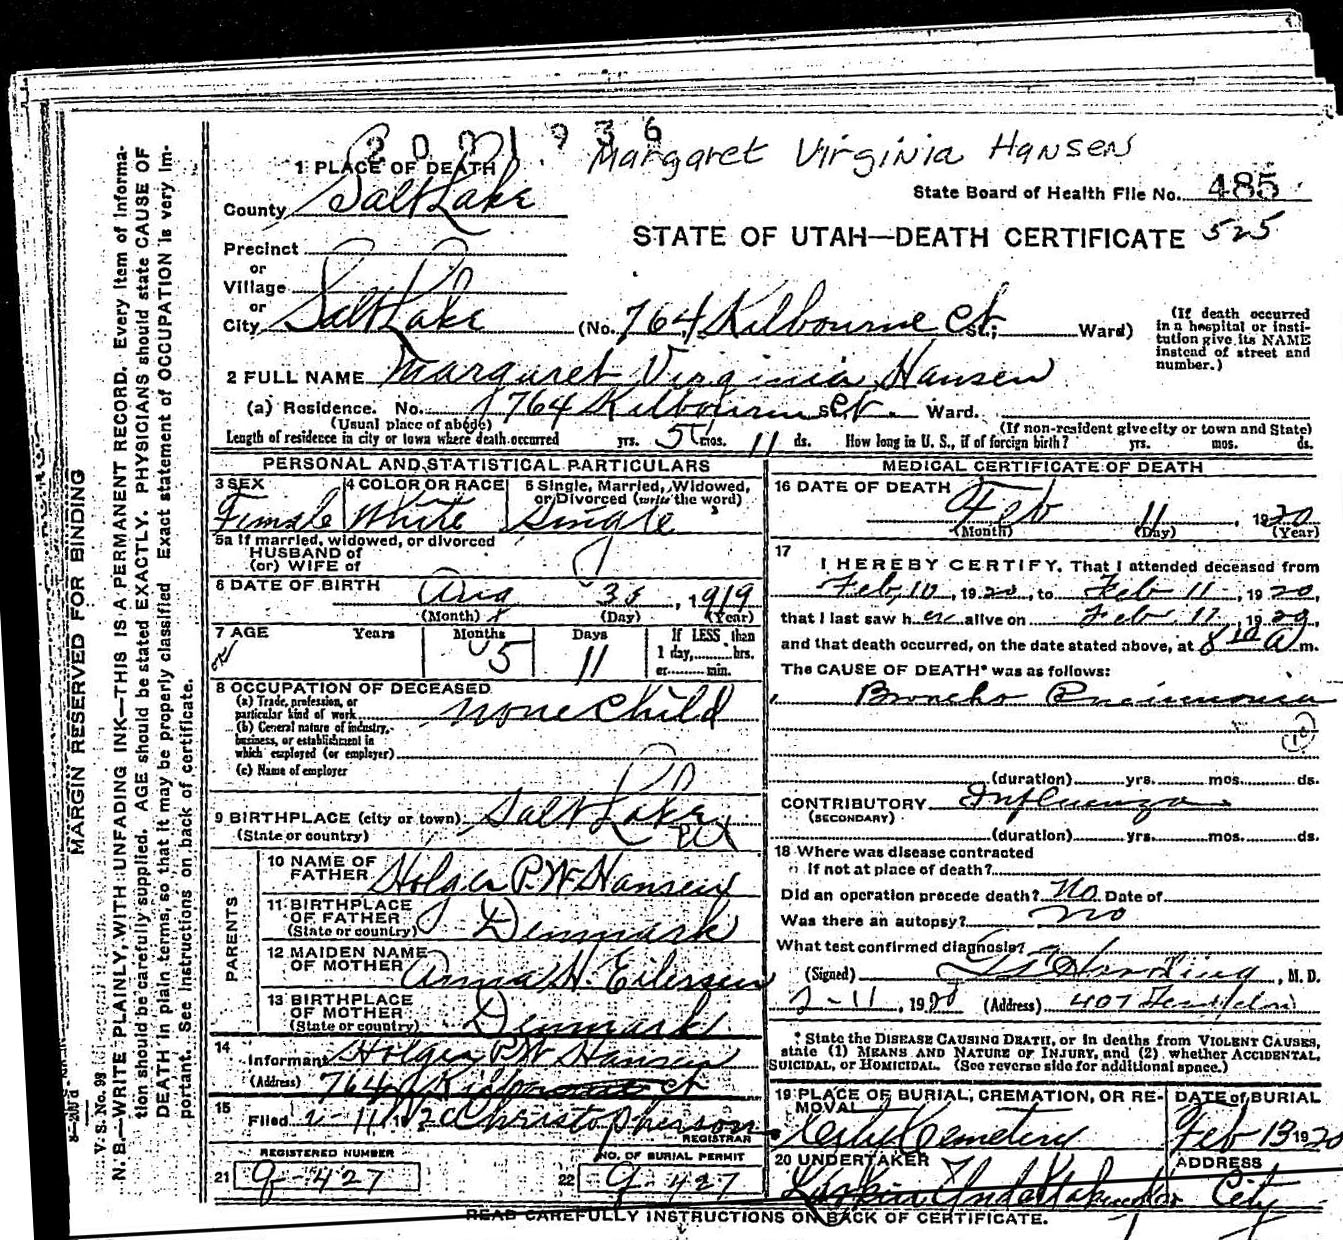 2001936
Margaret Virginia Hansen
1 PLACE OF DEATH
County Salt Lake
State Board of Health File No. 485
STATE OF UTAH—DEATH CERTIFICATE 525
Precinct
or
Village
or
City Salt Lake (No. 764 Kilbourne Ct St; Ward)
(If death occurred in a hospital or institution give its NAME instead of street and number.)
2 FULL NAME Margaret Virginia Hansen
(a) Residence. No. 764 Kilbourn Ct St. Ward.
(Usual place of abode) (If non-resident give city or town and State)
Length of residence in city or town where death occurred yrs. 5 mos. 11 ds. How long in U. S., if of foreign birth? yrs. mos. ds.
PERSONAL AND STATISTICAL PARTICULARS
3 SEX Female
4 COLOR OR RACE White
5 Single, Married, Widowed, or Divorced (write the word) Single
5a If married, widowed, or divorced
HUSBAND of
(or) WIFE of
6 DATE OF BIRTH Aug 30, 1919
(Month) (Day) (Year)
7 AGE Years Months 5 Days 11
If LESS than
1 day, hrs.
or min.
8 OCCUPATION OF DECEASED
(a) Trade, profession, or
particular kind of work none Child
(b) General nature of industry,
business, or establishment in
which employed (or employer)
(c) Name of employer
9 BIRTHPLACE (city or town) Salt Lake
(State or country) Ut
PARENTS
10 NAME OF
FATHER Holger P. W Hansen
11 BIRTHPLACE
OF FATHER
(State or country) Denmark
12 MAIDEN NAME
OF MOTHER Anna H. Eilersen
13 BIRTHPLACE
OF MOTHER
(State or country) Denmark
14
Informant Holger P. W Hansen
(Address) 764 Ct
15
Filed 2-11 1920 Christopherson
REGISTRAR
REGISTERED NUMBER
21 9-427
NO. OF BURIAL PERMIT
22 9-427
MEDICAL CERTIFICATE OF DEATH
16 DATE OF DEATH
Feb 11, 1920
(Month) (Day) (Year)
17
I HEREBY CERTIFY, That I attended deceased from
Feb, 10, 1920, to Feb 11, 1920,
that I last saw h er alive on Feb 11, 1920,
and that death occurred, on the date stated above, at 8 10 A m.
The CAUSE OF DEATH* was as follows:
Broncho Pneumonia
(10)
(duration) yrs. mos. ds.
CONTRIBUTORY Influenza
(SECONDARY)
(duration) yrs. mos. ds.
18 Where was disease contracted
If not at place of death?
Did an operation precede death? No Date of
Was there an autopsy? no
What test confirmed diagnosis?
(Signed) Harding, M. D.
2-11, 1920 (Address) 407
* State the DISEASE CAUSING DEATH, or in deaths from VIOLENT CAUSES,
state (1) MEANS AND NATURE OF INJURY, and (2) whether ACCIDENTAL,
SUICIDAL, or HOMICIDAL. (See reverse side for additional space.)
19 PLACE OF BURIAL, CREMATION, OR REMOVAL
City Cemetery
DATE of BURIAL
Feb 13 1920
20 UNDERTAKER
ADDRESS
City
READ CAREFULLY INSTRUCTIONS ON BACK OF CERTIFICATE.
MARGIN RESERVED FOR BINDING
V. S. No. 98
N. B.—WRITE PLAINLY, WITH UNFADING INK—THIS IS A PERMANENT RECORD. Every item of informa-
tion should be carefully supplied. AGE should be stated EXACTLY. PHYSICIANS should state CAUSE OF
DEATH in plain terms, so that it may be properly classified. Exact statement of OCCUPATION is very im-
portant. See instructions on back of certificate.